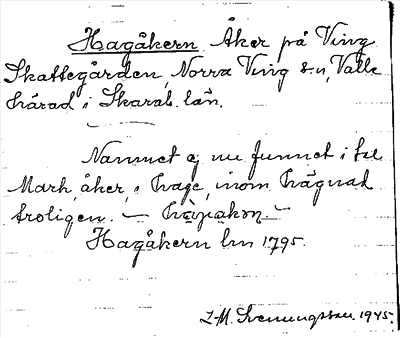 Hagåkern Åker på Ving
Skattegården, Norra Ving s:n, Valle
härad i Skarab. län.
Namnet ej nu funnet i
Mark, åker, i hage, inom hägnad
troligen. —
Hagåkern lm 1795.
L-M. Svenungsson. 1945.